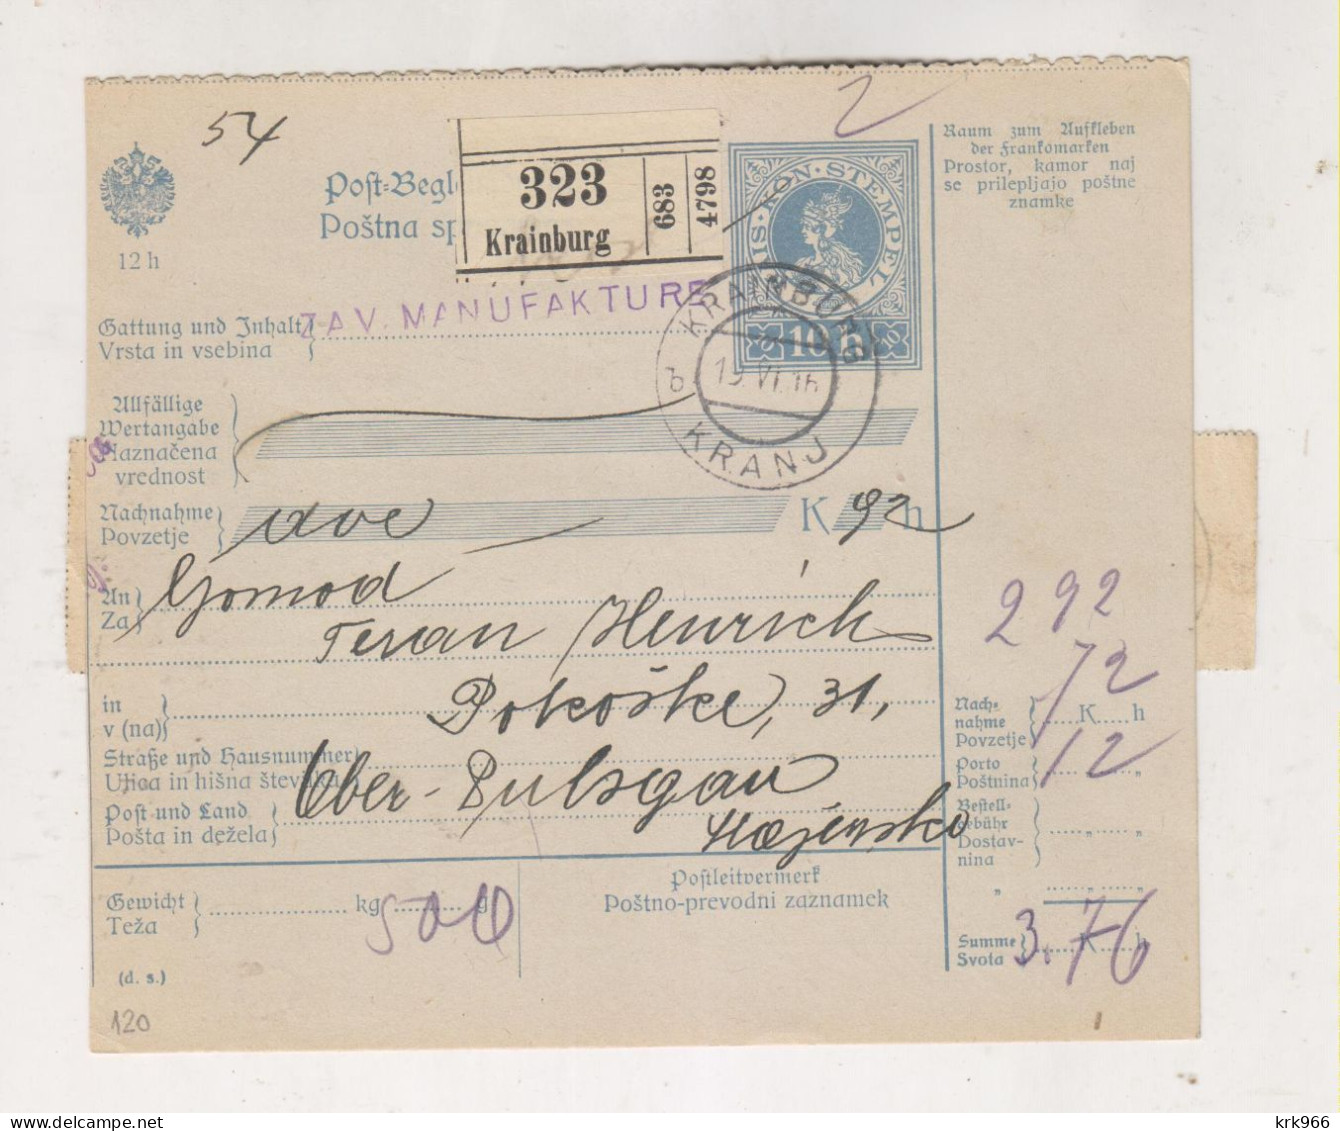 54
2
12 h
Post-Begl
Poštna sp
323
Krainburg
683
4798
KON. STEMPEL
10 h
Raum zum Aufkleben
der Frankomarken
Prostor, kamor naj
se prilepljajo poštne
znamke
ZAV. MANUFAKTURE
Gattung und Inhalt
Vrsta in vsebina
KRAINBURG
19. VI. 16
KRANJ
b
Allfällige
Wertangabe
Naznačena
vrednost
Nachnahme
Povzetje
dve
K 92 h
An
Za
Gomod
Teran Henrich
in
v (na)
Pokoške, 31,
Straße und Hausnummer
Ulica in hišna številka
Ober-
Post und Land
Pošta in dežela
2 92
72
12
Nach-
nahme
Povzetje
K h
Porto
Poštnina
Bestell-
gebühr
Dostav-
nina
Summe
Svota
K h
3.76
Gewicht
Teža
kg g
500
Postleitvermerk
Poštno-prevodni zaznamek
(d. s.)
120
krk966